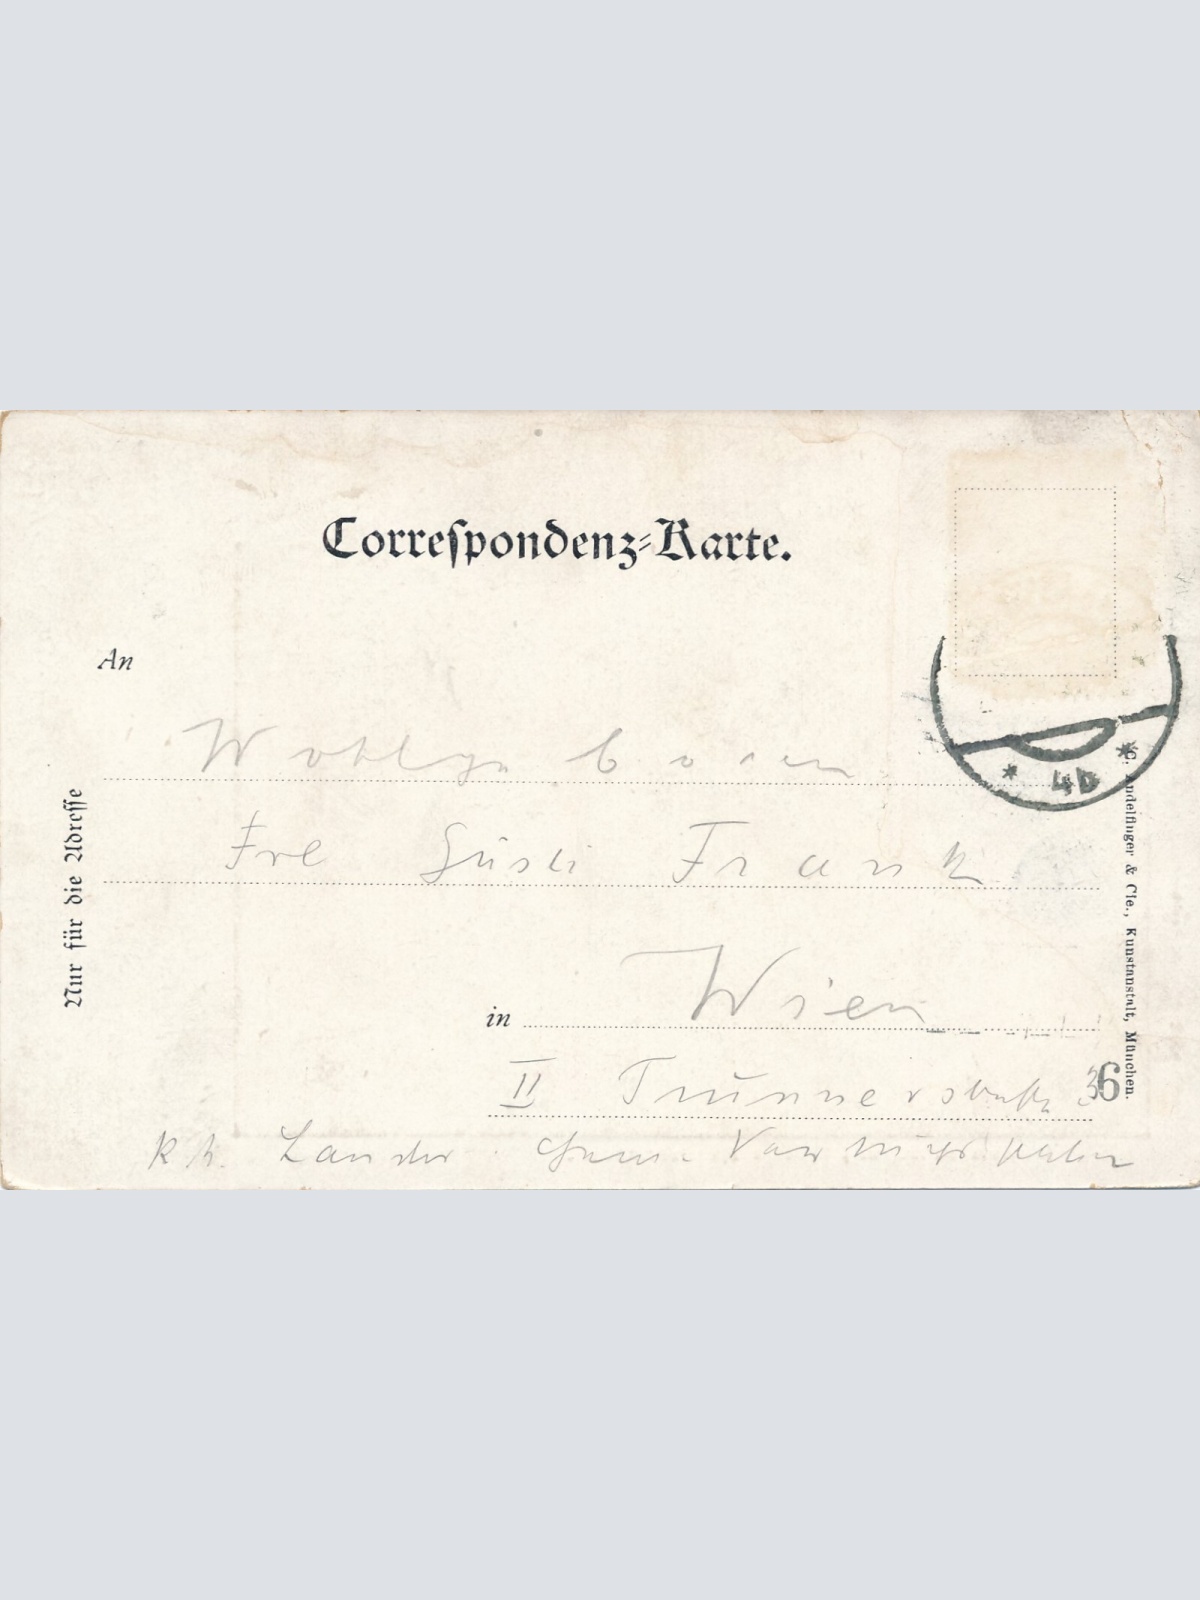 Correspondenz-Karte.
An
Wohlgeboren
Frl Gusti Frank
in Wien
II Trunnerstraße 3
6
k. k. Länder
Nur für die Adresse
C. Andelfinger & Cie., Kunstanstalt, München.
* 4b *